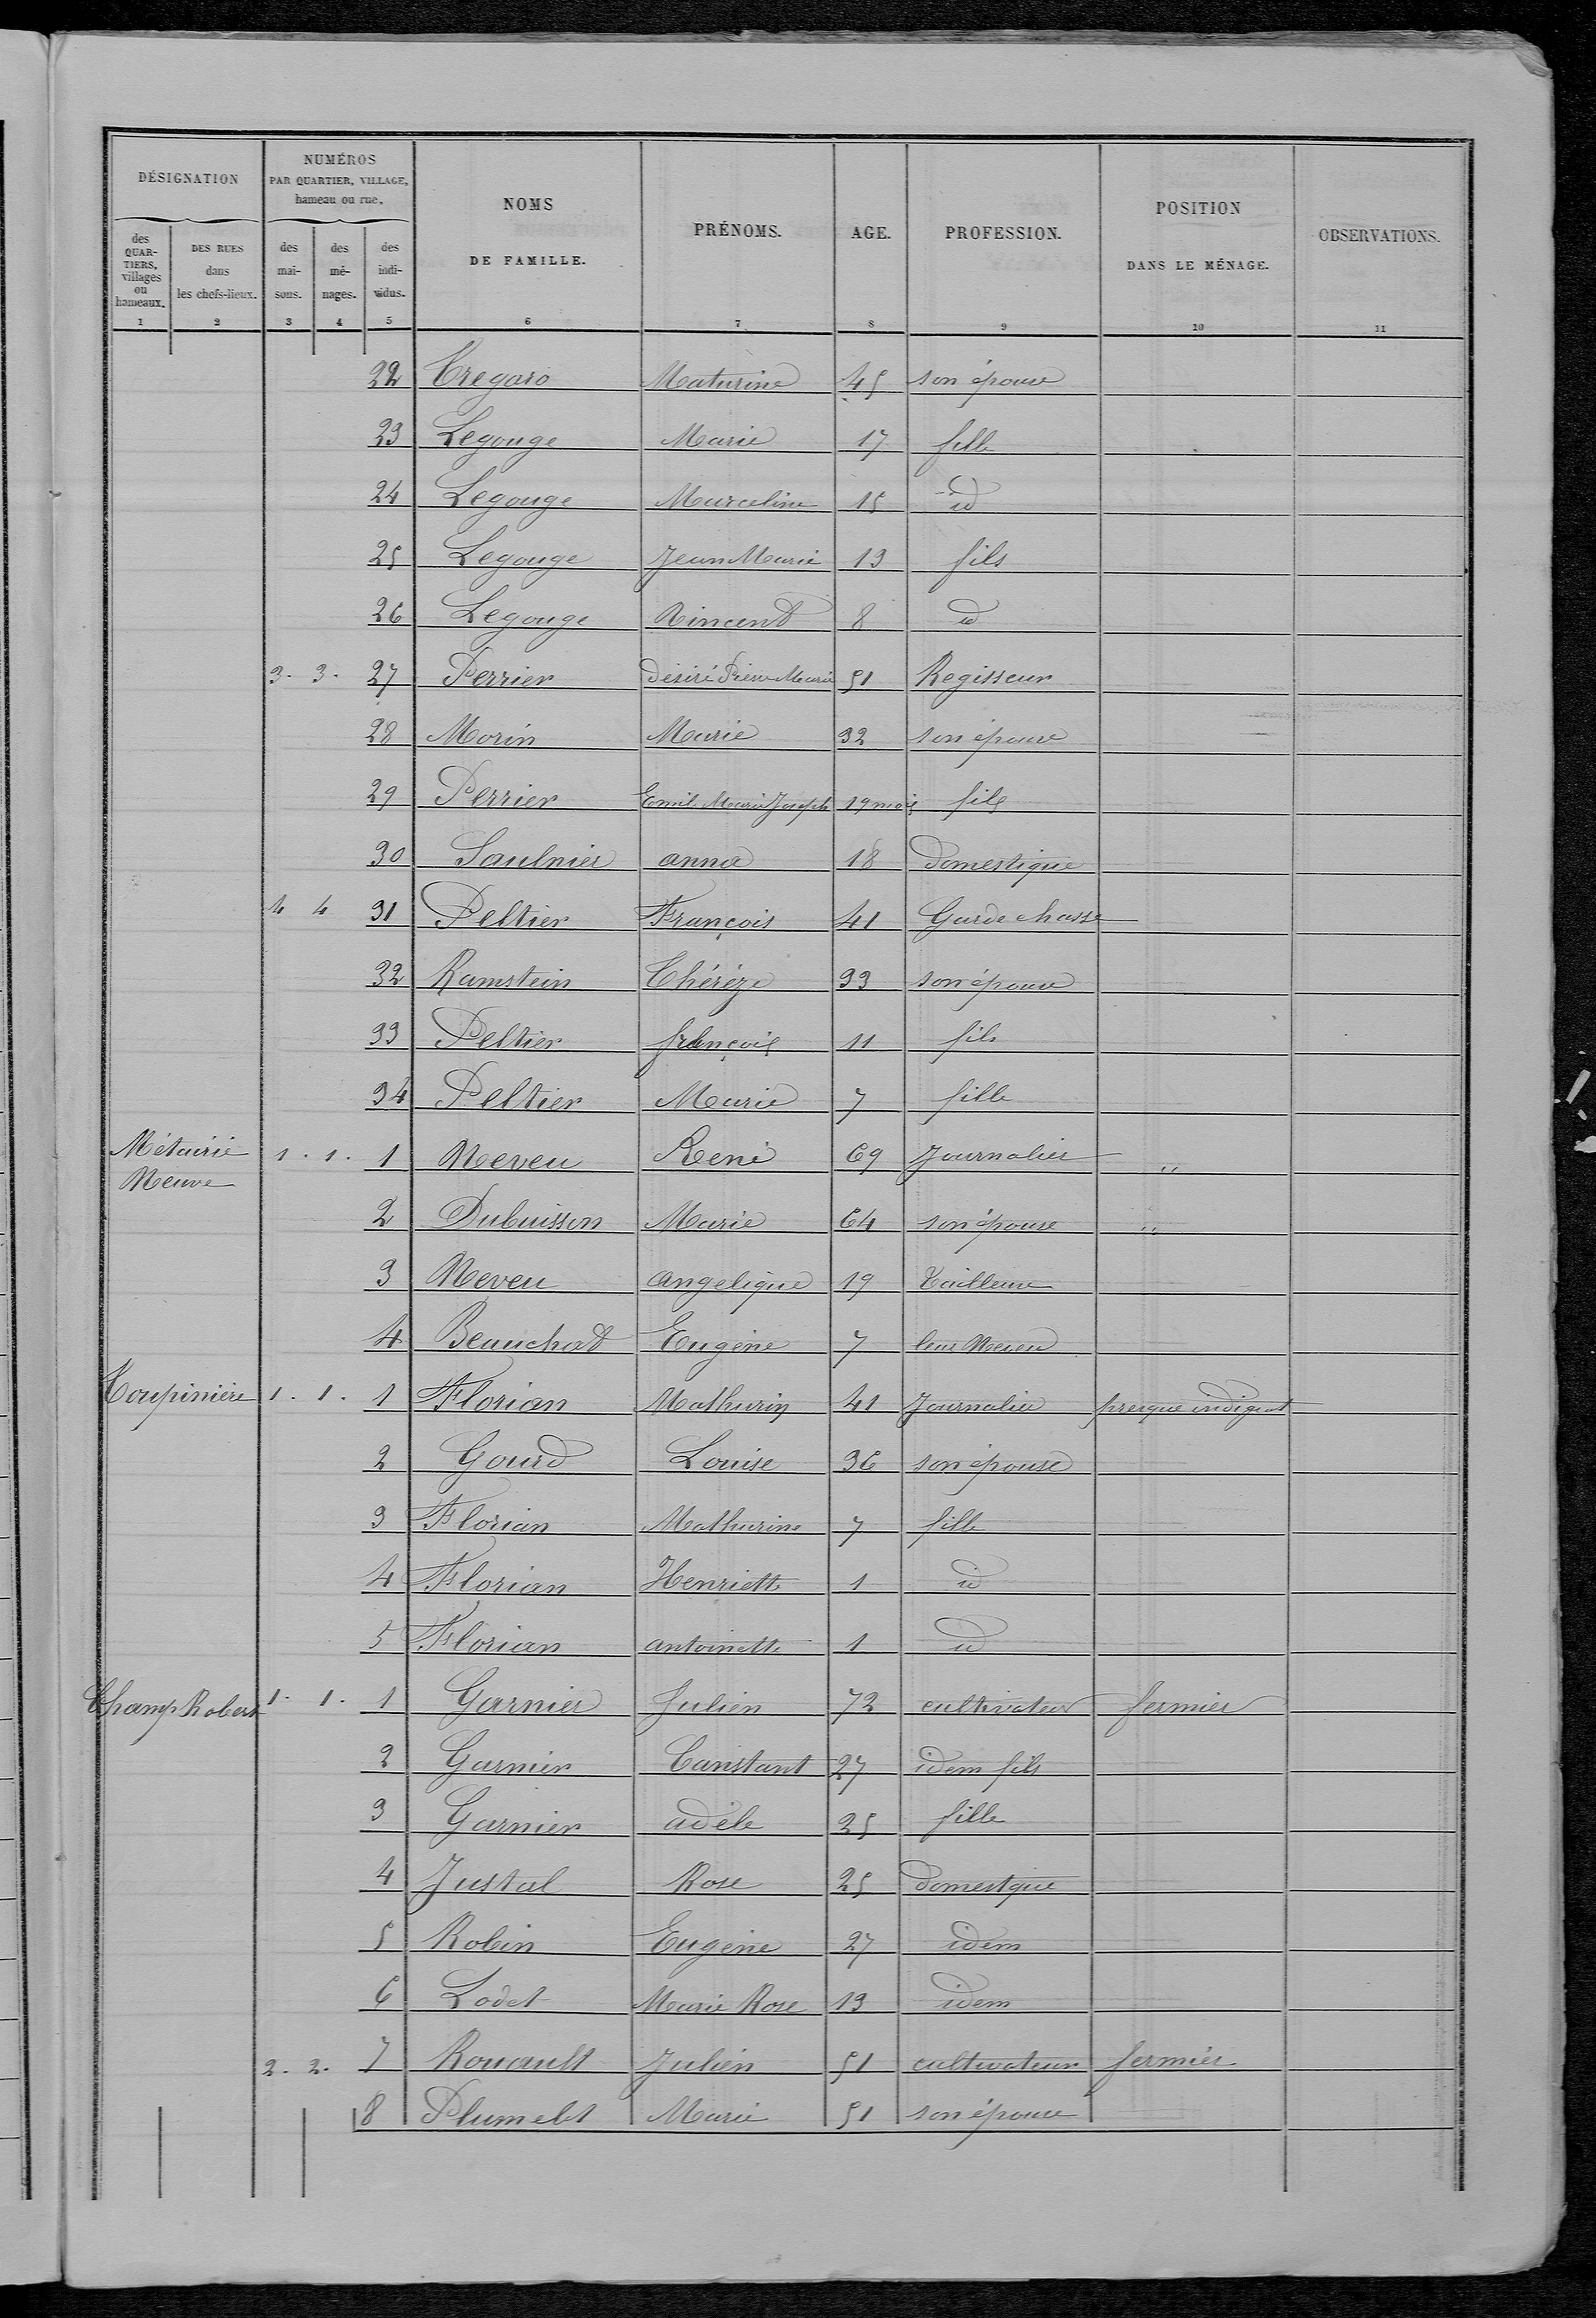 DÉSIGNATION NUMÉROS PAR QUARTIER, VILLAGE, hameau ou rue. NOMS DE FAMILLE. PRÉNOMS. AGE. PROFESSION. POSITION DANS LE MÉNAGE. OBSERVATIONS.
des QUARTIERS, villages ou hameaux. DES RUES dans les chefs-lieux. des maisons. des ménages. des individus.
1 2 3 4 5 6 7 8 9 10 11
22 Tregaro Maturine 45 son épouse
23 Legouge Marie 17 fille
24 Legouge Marceline 15 id
25 Legouge Jean Marie 13 fils
26 Legouge Vincent 8 id
3. 3. 27 Perrier Désiré Pierre Marie 51 Regisseur
28 Morin Marie 32 son épouse
29 Perrier Emile Marie Joseph 19 mois fils
30 Saulnier anna 18 Domestique
4 4 31 Peltier François 41 Garde chasse
32 Ramstein Thérèze 33 son épouse
33 Peltier françois 11 fils
34 Peltier Marie 7 fille
Métairie Neuve 1. 1. 1 Neveu René 69 Journalier "
2 Dubuisson Marie 64 son épouse "
3 Neveu angelique 19 Tailleuse
4 Beauchat Eugène 7 leur Neveu
Toupinière 1. 1. 1 Florian Mathurin 41 Journalier presque indigent
2 Gourd Louise 36 son épouse
3 Florian Mathurine 7 fille
4 Florian Henriette 1 id
5 Florian antoinette 1 id
Champ Robert 1. 1. 1 Garnier Julien 72 cultivateur fermier
2 Garnier Constant 27 idem fils
3 Garnier adèle 25 fille
4 Justal Rose 25 domestque
5 Robin Eugène 27 idem
6 Lodet Marie Rose 13 idem
2. 2. 7 Rouault Julien 51 cultivateur fermier
8 Plumelet Marie 51 son épouse